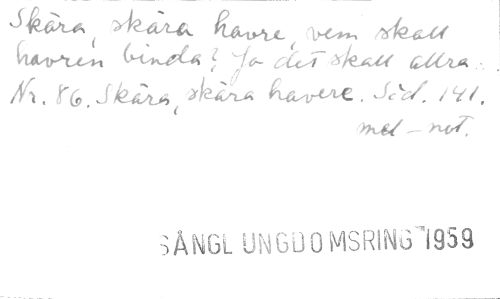 Skära, skära havre, vem skall
havren binda? Jo det skall allra..
Nr. 86. Skära, skära havere. Sid. 141.
med - not.
SÅNGL UNGDOMSRING 1959